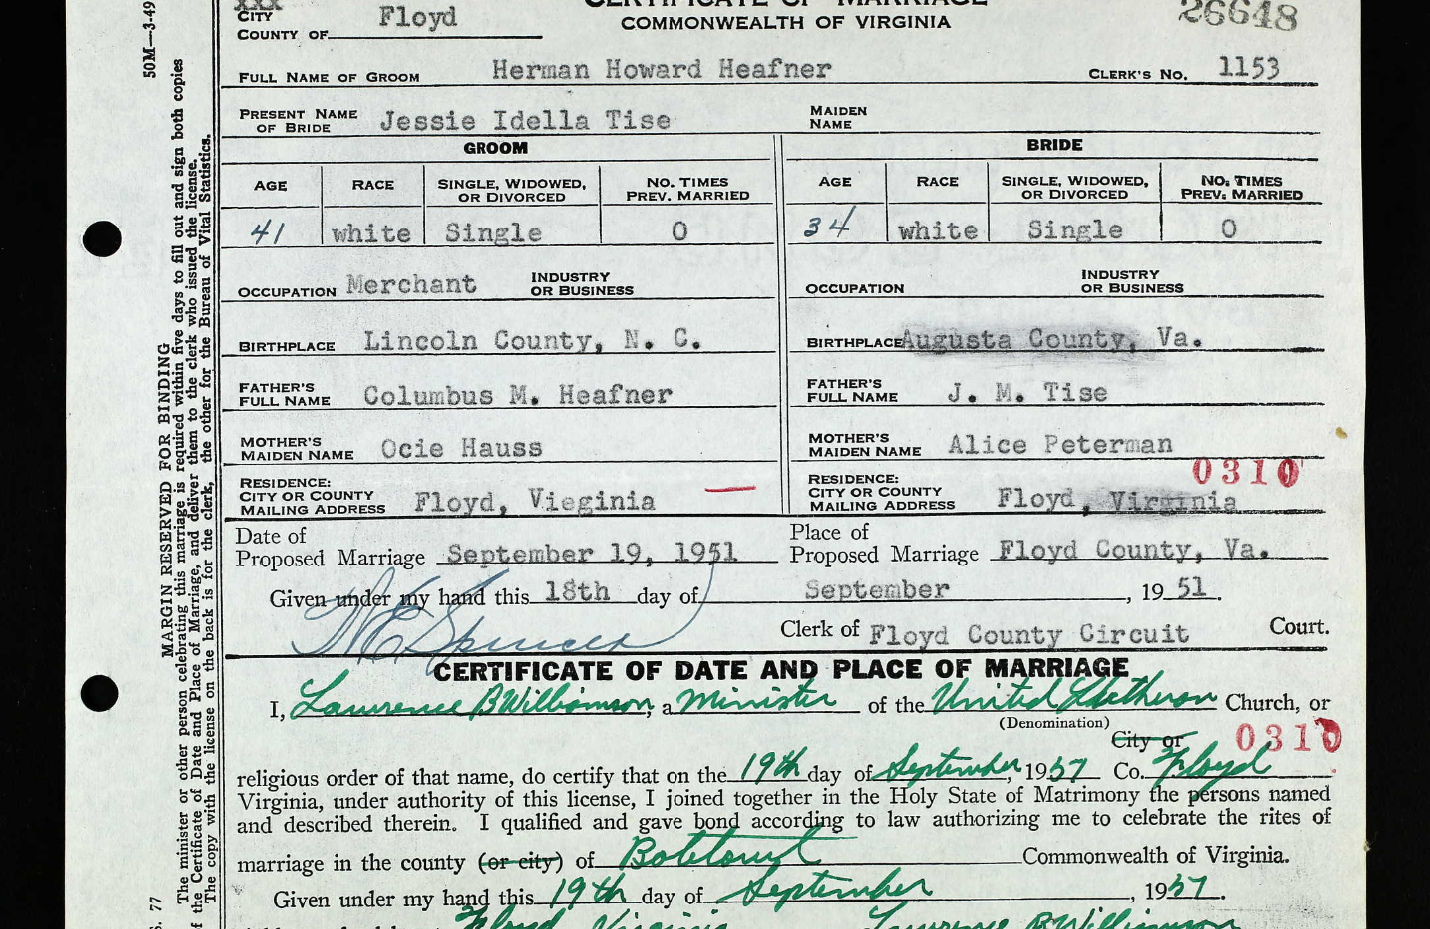 XXX
CITY
COUNTY OF Floyd
CERTIFICATE OF MARRIAGE
COMMONWEALTH OF VIRGINIA
26648
FULL NAME OF GROOM Herman Howard Heafner CLERK'S NO. 1153
PRESENT NAME OF BRIDE Jessie Idella Tise MAIDEN NAME
GROOM BRIDE
AGE RACE SINGLE, WIDOWED, OR DIVORCED NO. TIMES PREV. MARRIED AGE RACE SINGLE, WIDOWED, OR DIVORCED NO. TIMES PREV. MARRIED
41 white Single 0 34 white Single 0
OCCUPATION Merchant INDUSTRY OR BUSINESS OCCUPATION INDUSTRY OR BUSINESS
BIRTHPLACE Lincoln County, N. C. BIRTHPLACE Augusta County, Va.
FATHER'S FULL NAME Columbus M. Heafner FATHER'S FULL NAME J. M. Tise
MOTHER'S MAIDEN NAME Ocie Hauss MOTHER'S MAIDEN NAME Alice Peterman
0310
RESIDENCE: CITY OR COUNTY MAILING ADDRESS Floyd, Vieginia RESIDENCE: CITY OR COUNTY MAILING ADDRESS Floyd, Virginia
Date of Proposed Marriage September 19, 1951 Place of Proposed Marriage Floyd County, Va.
Given under my hand this 18th day of September, 19 51.
Spencer Clerk of Floyd County Circuit Court.
CERTIFICATE OF DATE AND PLACE OF MARRIAGE
I, Lawrence B Williamson, a Minister of the United Lutheran Church, or
(Denomination)
City or 0310
religious order of that name, do certify that on the 19th day of September, 1951 Co. Floyd
Virginia, under authority of this license, I joined together in the Holy State of Matrimony the persons named
and described therein. I qualified and gave bond according to law authorizing me to celebrate the rites of
marriage in the county (or city) of Botetourt Commonwealth of Virginia.
Given under my hand this 19th day of September, 1951.
Floyd, Virginia Lawrence B Williamson
50M—3-49
MARGIN RESERVED FOR BINDING
The minister or other person celebrating this marriage is required within five days to fill out and sign both copies
of the Certificate of Date and Place of Marriage, and deliver them to the clerk who issued the license.
The copy with the license on the back is for the clerk, the other for the Bureau of Vital Statistics.
77